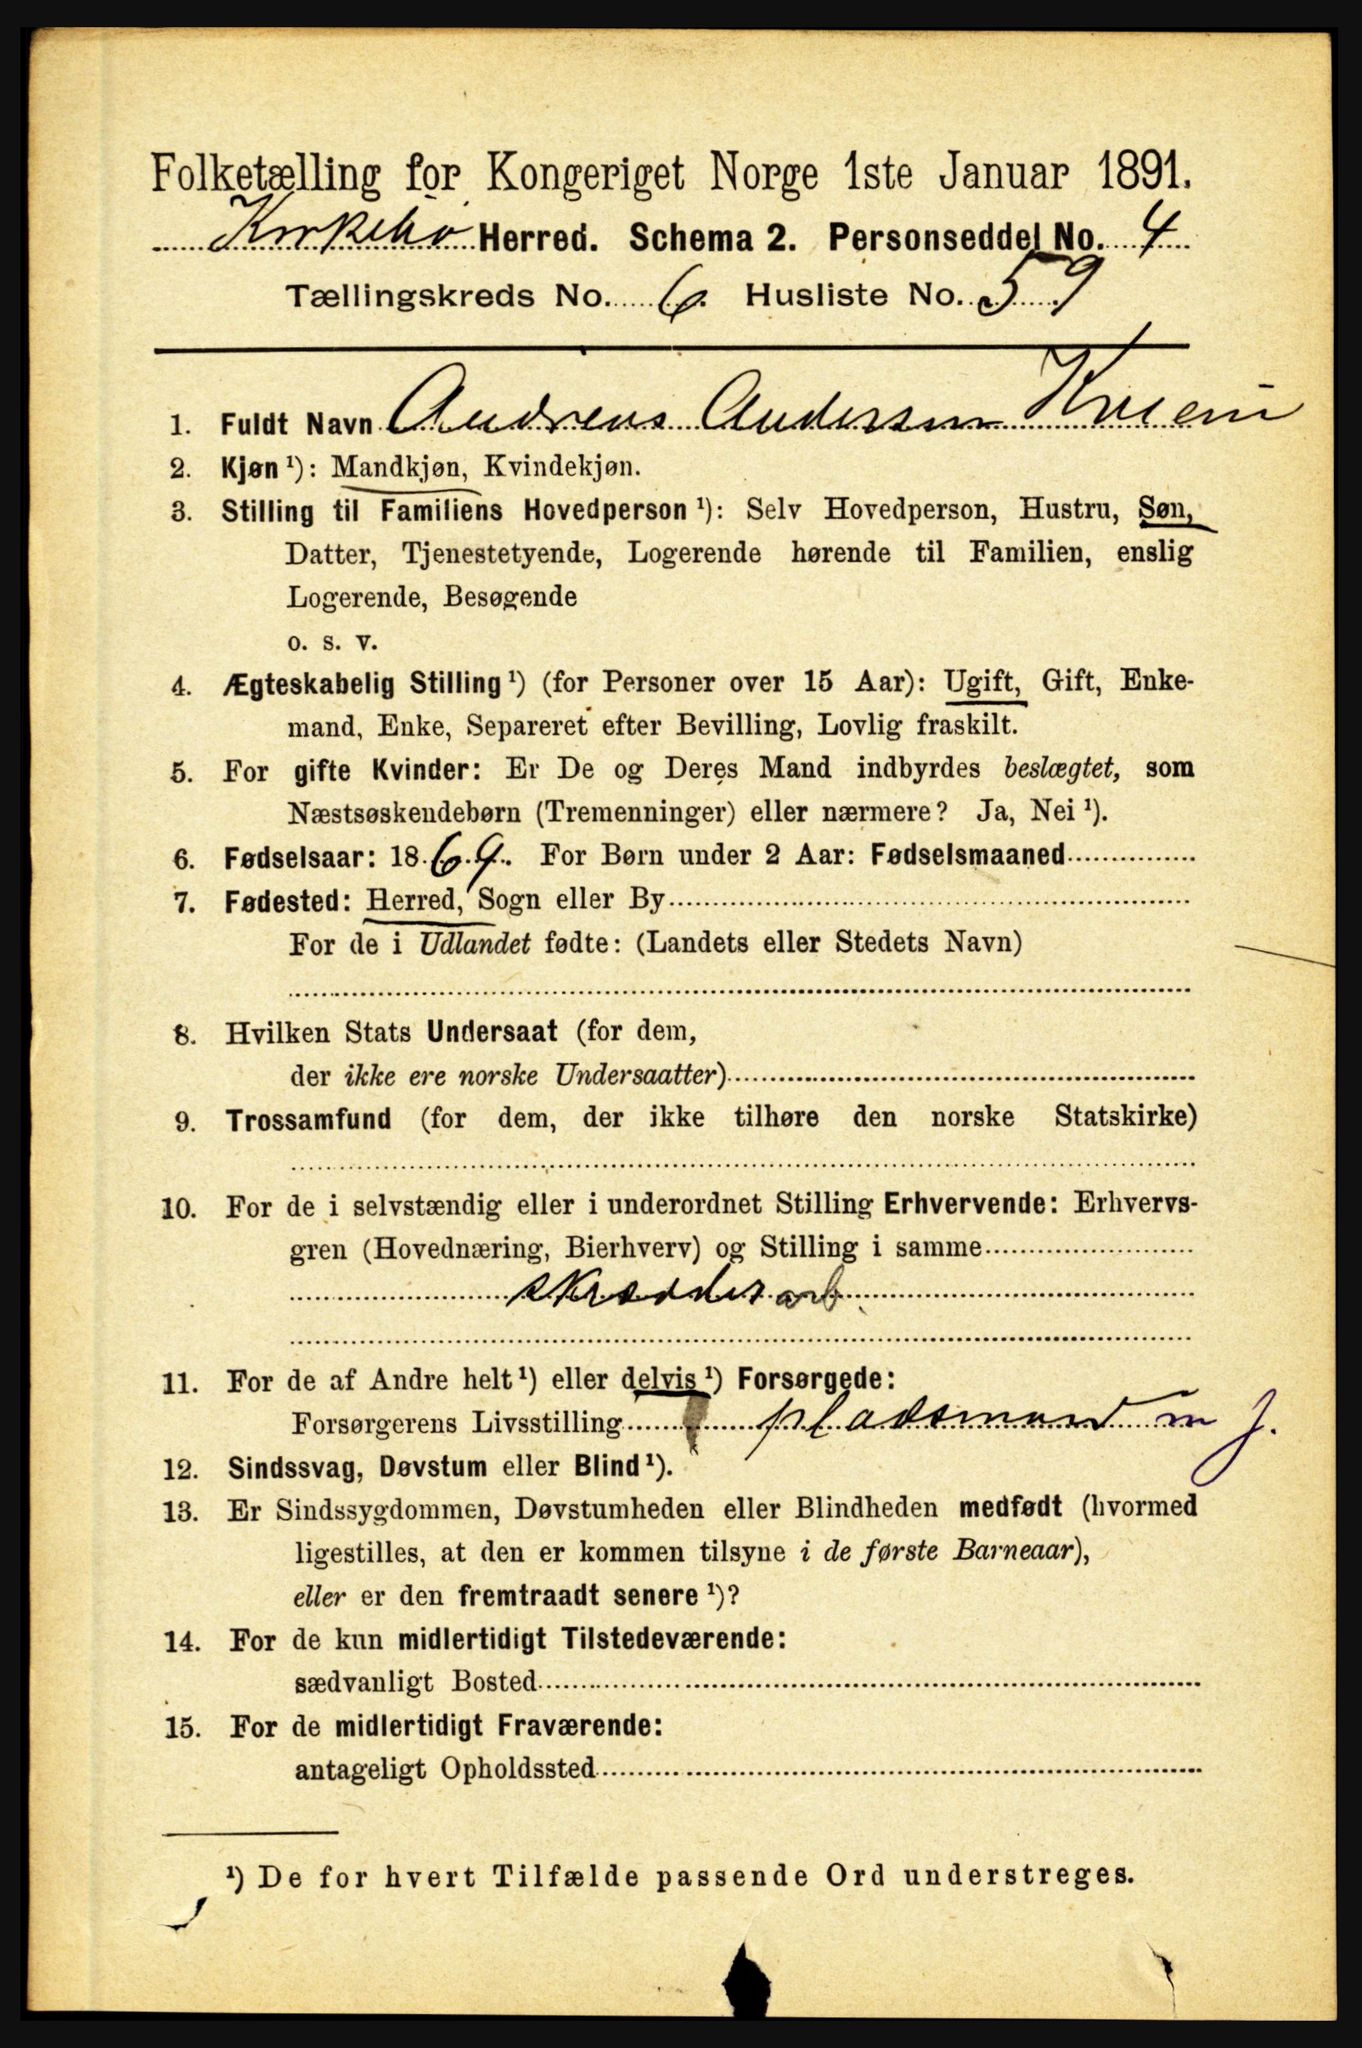 Folketælling for Kongeriget Norge 1ste Januar 1891.
Kirkebø Herred. Schema 2. Personseddel No. 4
Tællingskreds No. 6. Husliste No. 59
1. Fuldt Navn Andreas Andersen
2. Kjøn ¹): Mandkjøn, Kvindekjøn.
3. Stilling til Familiens Hovedperson ¹): Selv Hovedperson, Hustru, Søn,
Datter, Tjenestetyende, Logerende hørende til Familien, enslig
Logerende, Besøgende
o. s. v.
4. Ægteskabelig Stilling ¹) (for Personer over 15 Aar): Ugift, Gift, Enke-
mand, Enke, Separeret efter Bevilling, Lovlig fraskilt.
5. For gifte Kvinder: Er De og Deres Mand indbyrdes beslægtet, som
Næstsøskendebørn (Tremenninger) eller nærmere? Ja, Nei ¹).
6. Fødselsaar: 1869. For Børn under 2 Aar: Fødselsmaaned
7. Fødested: Herred, Sogn eller By
For de i Udlandet fødte: (Landets eller Stedets Navn)
8. Hvilken Stats Undersaat (for dem,
der ikke ere norske Undersaatter)
9. Trossamfund (for dem, der ikke tilhøre den norske Statskirke)
10. For de i selvstændig eller i underordnet Stilling Erhvervende: Erhvervs-
gren (Hovednæring, Bierhverv) og Stilling i samme
skrædderarb.
11. For de af Andre helt ¹) eller delvis ¹) Forsørgede:
Forsørgerens Livsstilling pladsmand m j.
12. Sindssvag, Døvstum eller Blind ¹).
13. Er Sindssygdommen, Døvstumheden eller Blindheden medfødt (hvormed
ligestilles, at den er kommen tilsyne i de første Barneaar),
eller er den fremtraadt senere ¹)?
14. For de kun midlertidigt Tilstedeværende:
sædvanligt Bosted
15. For de midlertidigt Fraværende:
antageligt Opholdssted
¹) De for hvert Tilfælde passende Ord understreges.